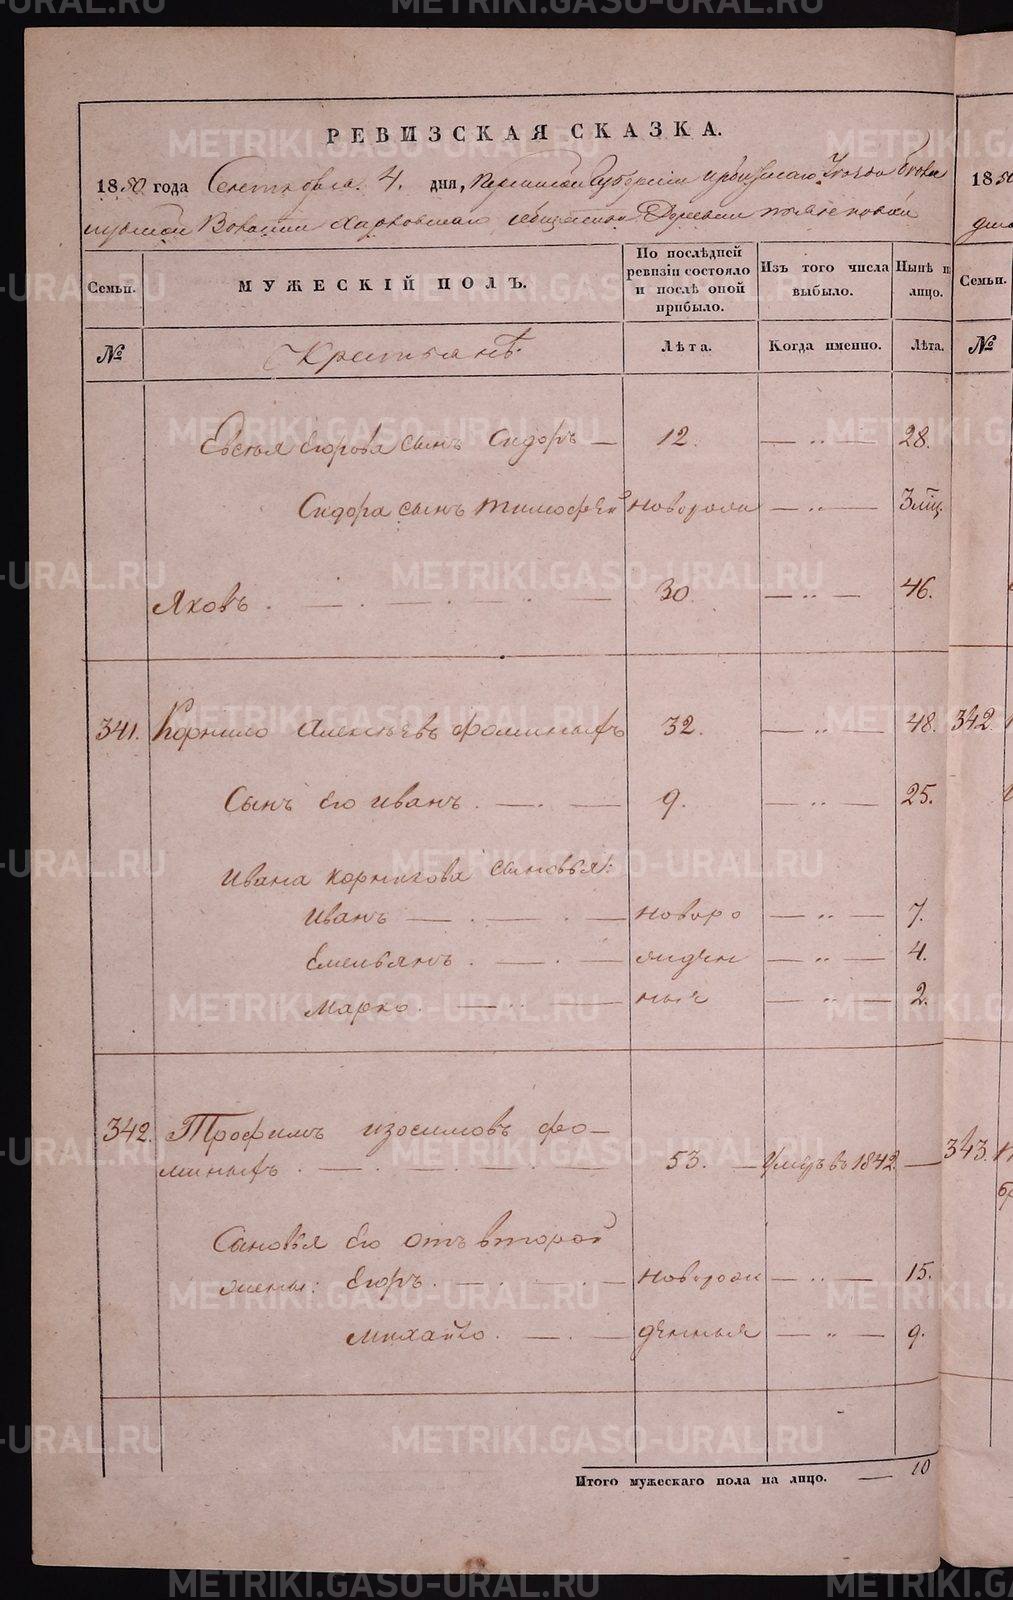 РЕВИЗСКАЯ СКАЗКА.
1850 года Сентября 4. дня, Пермской Губернии Ирбитскаго
Волости Харловскаго Деревни
Семьи.
МУЖЕСКІЙ ПОЛЪ.
По послѣдней ревизіи состояло и послѣ оной прибыло.
Изъ того числа выбыло.
Нынѣ на лицо.
№
Крестьянѣ.
Лѣта.
Когда именно.
Лѣта.
Евсѣя Егорова сынъ Сидоръ — 12. — „ — 28.
Сидора сынъ Тимофей новорожд — „ — 3 мѣц.
Яковъ . — . — . — . — 30. — „ — 46.
341. Корнило Алексѣевъ Фоминыхъ 32. — „ — 48.
Сынъ его Иванъ . — . — 9. — „ — 25.
Ивана Корнилова сыновья:
Иванъ — . — . — новоро — „ — 7.
Емельянъ . — . — жден — „ — 4.
Марко . — . — ныя — „ — 2.
342. Трофимъ Изосимовъ Фо—
миныхъ . — . — . — 53. — Умеръ в 1842 —
Сыновья его отъ второй
жены: Егоръ . — . — новорож — „ — 15.
Михайло . — . — денныя — „ — 9.
Итого мужескаго пола на лицо. — 10
1850
Семьи.
№
342.
343.
METRIKI.GASO-URAL.RU